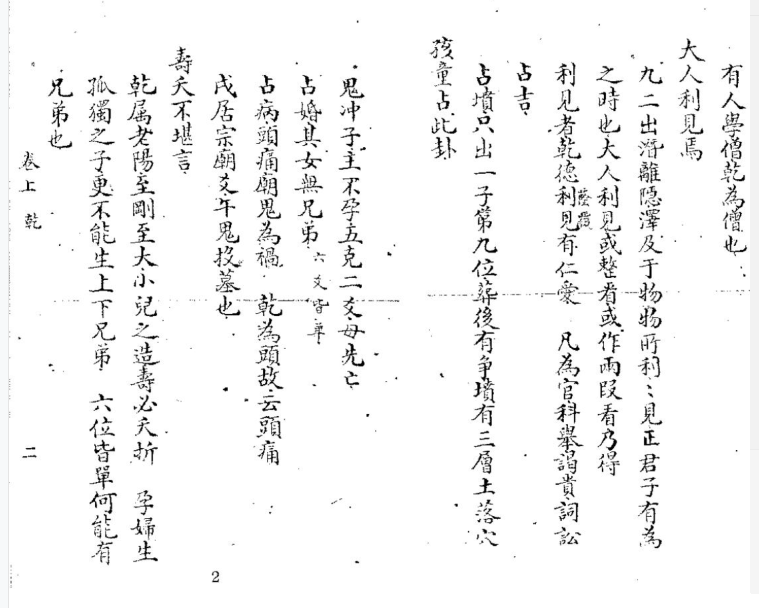 有人學僧乾為僧也
大人利見焉
九二出潛離隱澤及于物物所利〻見正君子有為
之時也大人利見或整看或作兩段看乃得
利見者乾德利見有仁愛 凡為官科舉謁貴詞訟
占吉
占墳只出一子第九位葬後有爭墳有三層土落穴
孩童占此卦
鬼冲子主不孕五克二爻母先亡
占婚其女無兄弟 六爻皆單
占病頭痛廟鬼為禍 乾為頭故云頭痛
戌居宗廟爻午鬼投墓也
壽夭不堪言
乾属老陽至剛至大小兒之造壽必夭折 孕婦生
孤獨之子更不能生上下兄弟 六位皆單何能有
兄弟也
卷上 乾 二
2